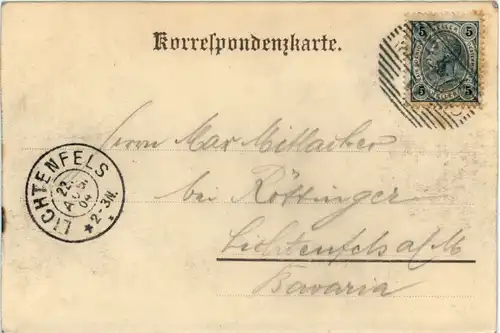 Korrespondenzkarte.
5 5
5 5
Herrn Max Mitlacher
bei Röttinger
Lichtenfels a/M
Bavaria
LICHTENFELS
22.
AUG.
04
2-3N.